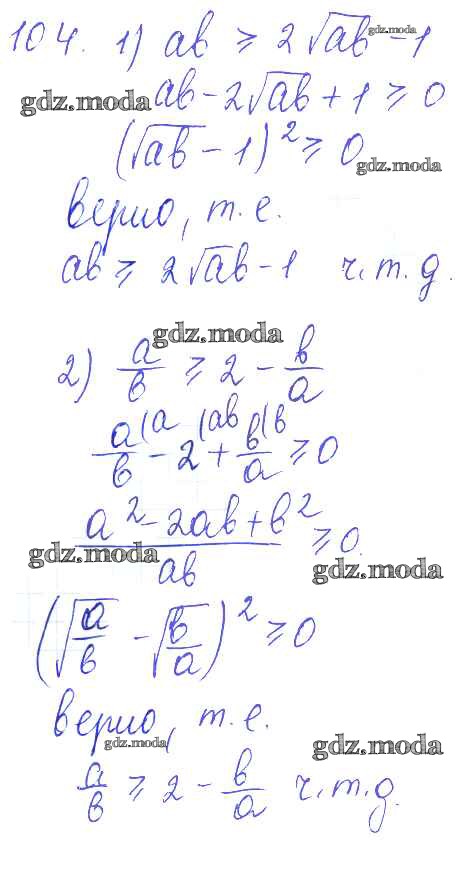 104. 1) ab ≥ 2√ab - 1
gdz.moda
gdz.moda ab - 2√ab + 1 ≥ 0
(√ab - 1)² ≥ 0
gdz.moda
верно, т.е.
ab ≥ 2√ab - 1 ч.т.д.
gdz.moda
2) a/b ≥ 2 - b/a
a/b (a - 2 (ab + b/a (b ≥ 0
(a² - 2ab + b²)/ab ≥ 0
gdz.moda gdz.moda
(√a/b - √b/a)² ≥ 0
верно, т.е.
gdz.moda gdz.moda
a/b ≥ 2 - b/a ч.т.д.